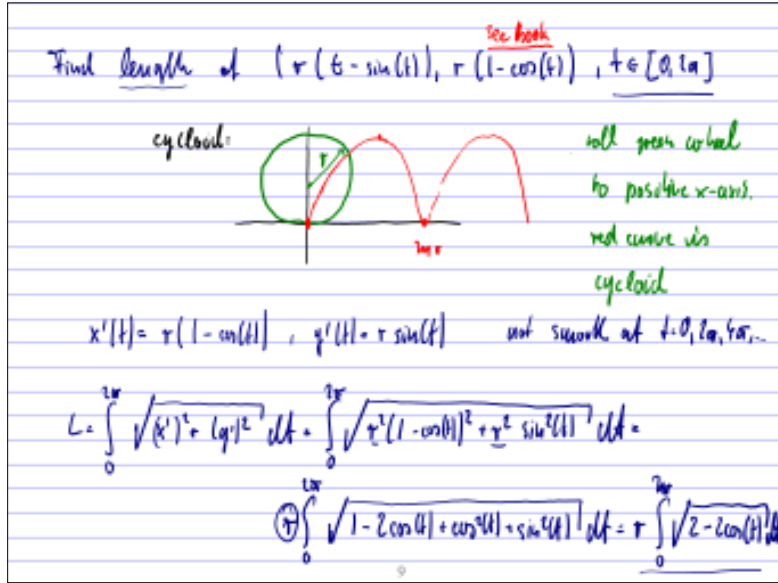 see book
Find length of (r(t - sin(t)), r(1 - cos(t)) , t ∈ [0, 2π]
cycloid:
r
roll green wheel
to positive x-axis.
red curve is
cycloid
2πr
x'(t) = r(1 - cos(t)) , y'(t) = r sin(t) not smooth at t=0, 2π, 4π,...
L = ∫₀^2π √((x')² + (y')²) dt = ∫₀^2π √(r²(1 - cos(t))² + r² sin²(t)) dt =
r ∫₀^2π √(1 - 2cos(t) + cos²(t) + sin²(t)) dt = r ∫₀^2π √(2 - 2cos(t)) dt
9